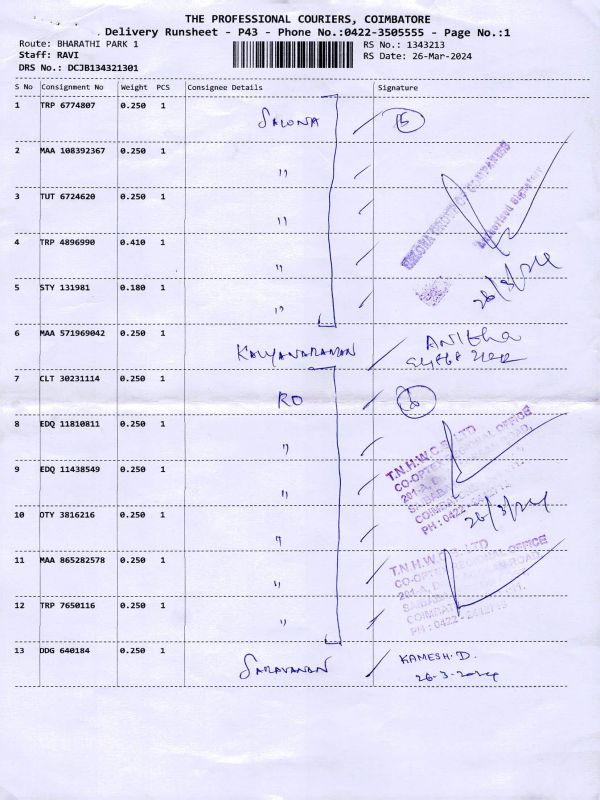 THE PROFESSIONAL COURIERS, COIMBATORE
Delivery Runsheet - P43 - Phone No.:0422-3505555 - Page No.:1
Route: BHARATHI PARK 1 RS No.: 1343213
Staff: RAVI RS Date: 26-Mar-2024
DRS No.: DCJB134321301
S No Consignment No Weight PCS Consignee Details Signature
1 TRP 6774807 0.250 1 SALONA 15
2 MAA 108392367 0.250 1 "
3 TUT 6724620 0.250 1 "
4 TRP 4896990 0.410 1 "
5 STY 131981 0.180 1 "
Authorised Signatory
26/3/24
6 MAA 571969042 0.250 1 KALYANARAMAN ANITHA
7 CLT 30231114 0.250 1 RO
8 EDQ 11810811 0.250 1 "
9 EDQ 11438549 0.250 1 "
T.N.H.W.C.S. LTD
CO-OPTEX REGIONAL OFFICE
26/3/24
10 OTY 3816216 0.250 1 "
11 MAA 865282578 0.250 1 "
12 TRP 7650116 0.250 1 "
T.N.H.W.C.S. LTD
CO-OPTEX REGIONAL OFFICE
13 DDG 640184 0.250 1 SARAVANAN KAMESH.D.
26-3-2024